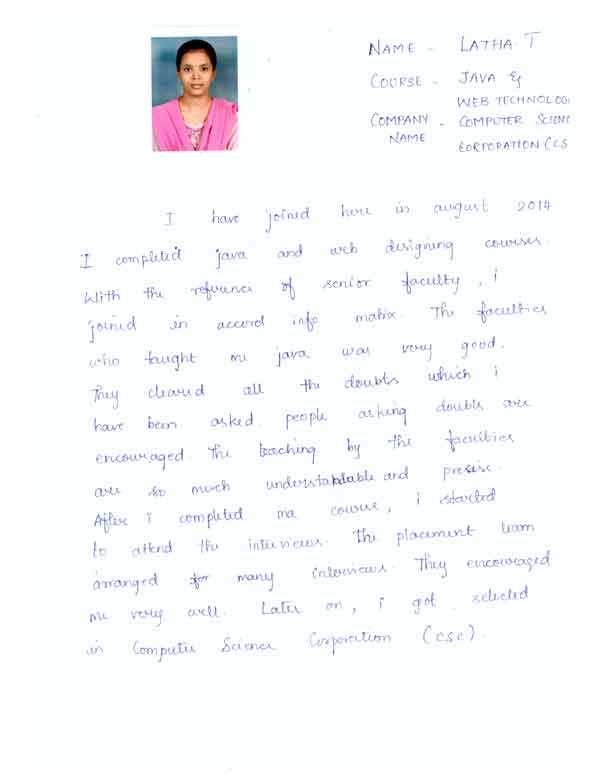 NAME - LATHA. T
COURSE - JAVA &
WEB TECHNOLOG
COMPANY NAME - COMPUTER SCIENC
CORPORATION (CS
I have joined here in august 2014
I completed java and web designing courses.
With the referance of senior faculty, i
joined in accord info matrix. The faculties
who taught me java was very good.
They cleared all the doubts which i
have been asked. people asking doubts are
encouraged the teaching by the faculties
are so much understandable and presise.
After i completed ma course, i started
to attend the interviews. The placement team
arranged for many interviews. They encouraged
me very well. Later on, i got selected
in Computer Science Corporation (csc).